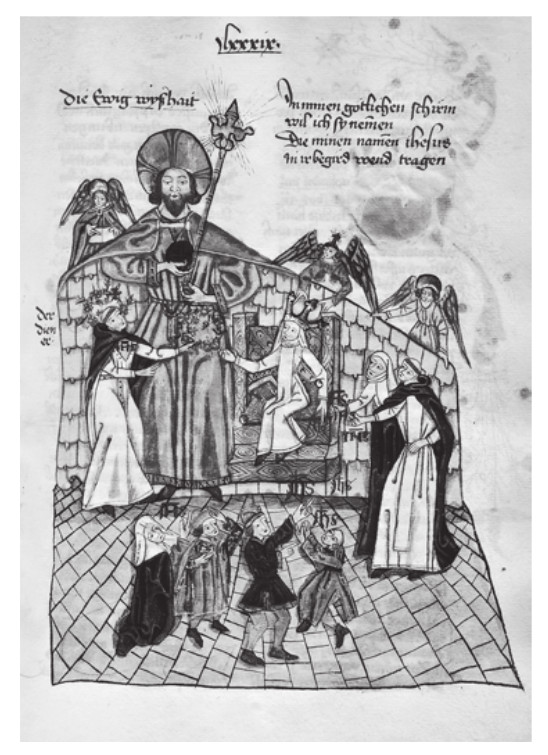 lxxxix.
die Ewig wyßhait
In minen götlichen schirm
wil ich sy nemen
Die minen namen ihesus
in ir begird wend tragen
der
dien
er
ihs
ihs
IHS
ihs
ihs